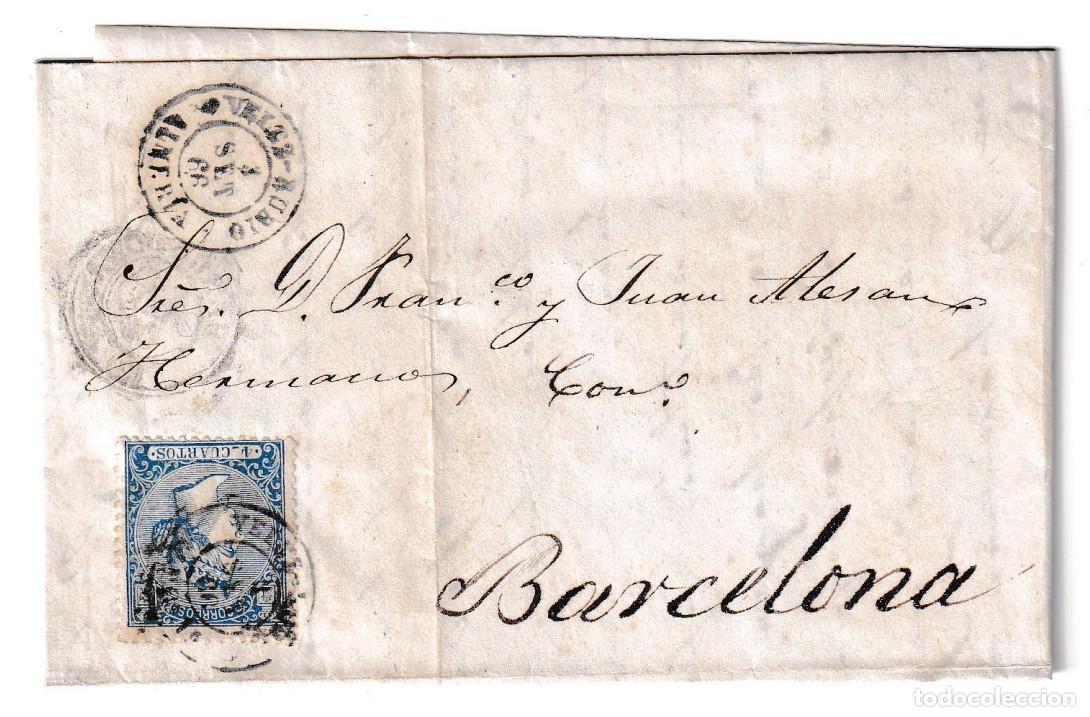 VELEZ-RUBIO
ALMERIA
SET
Sres. D. Fran.co y Juan Alesan
Hermanos, Com.o
4 CUARTOS
CORREOS
Barcelona
todocoleccion